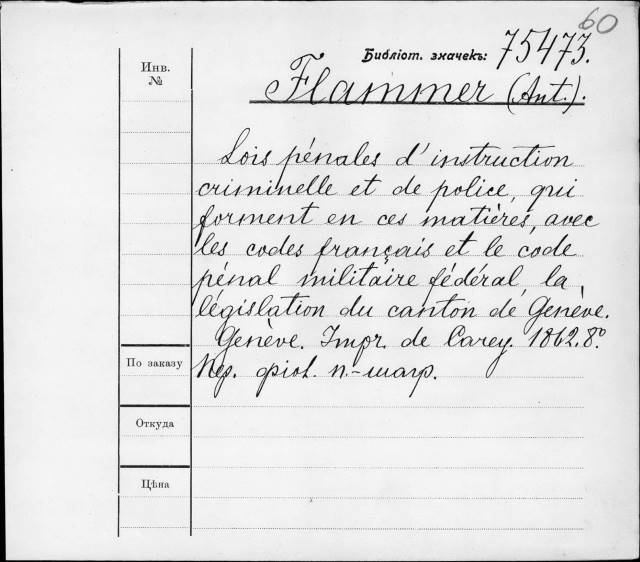 60
Библіот. значекъ: 75473.
Инв.
№
Flammer (Ant.).
Lois pénales d'instruction
criminelle et de police, qui
forment en ces matières, avec
les codes français et le code
pénal militaire fédéral, la
législation du canton de Genève.
Genève. Impr. de Carey. 1862. 8º.
Пер. фіол. п.-шагр.
По заказу
Откуда
Цѣна